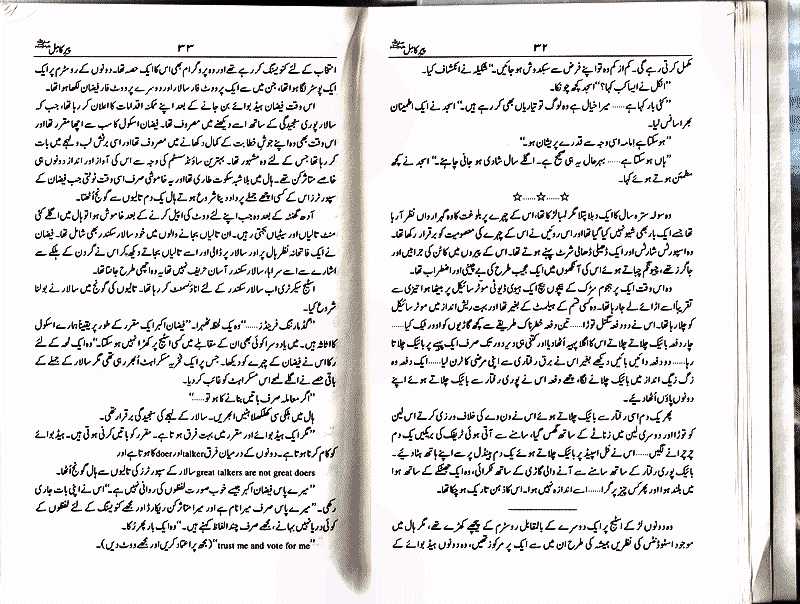 ۳۲ پیرِ کامل ﷺ
مکمل کرتی رہے گی۔ کم از کم وہ تو اپنے فرض سے سبکدوش ہو جائیں۔" شکیلہ نے انکشاف کیا۔
"انکل نے ایسا کب کہا؟" اسجد کچھ چونکا۔
"کئی بار کہا ہے...... میرا خیال ہے وہ لوگ تو تیاریاں بھی کر رہے ہیں۔" اسجد نے ایک اطمینان
بھرا سانس لیا۔
"ہو سکتا ہے امامہ اسی وجہ سے قدرے پریشان ہو۔"
"ہاں ہو سکتا ہے...... بہرحال یہ ہی صحیح ہے۔ اگلے سال شادی ہو جانی چاہئے۔" اسجد نے کچھ
مطمئن ہوتے ہوئے کہا۔
☆......☆......☆
وہ سولہ سترہ سال کا ایک دبلا پتلا مگر لمبا لڑکا تھا، اس کے چہرے پر بلوغت کا وہ گہرا رواں نظر آ رہا
تھا جسے ایک بار بھی شیو نہیں کیا گیا تھا اور اس روئیں نے اس کے چہرے کی معصومیت کو برقرار رکھا تھا۔
وہ اسپورٹس شارٹس اور ایک ڈھیلی ڈھالی شرٹ پہنے ہوئے تھا۔ اس کے پیروں میں کاٹن کی جرابیں اور
جاگرز تھے، چیونگم چباتے ہوئے اس کی آنکھوں میں ایک عجیب طرح کی بے چینی اور اضطراب تھا۔
وہ اس وقت ایک پر ہجوم سڑک کے بیچوں بیچ ایک ہیوی ڈیوٹی موٹر سائیکل پر بیٹھا ہوا تیزی سے
تقریباً اسے اڑائے لے جا رہا تھا۔ وہ کسی قسم کے ہیلمٹ کے بغیر تھا اور بہت ریش انداز میں موٹر سائیکل
کو چلا رہا تھا۔ اس نے دو دفعہ سگنل توڑا...... تین دفعہ خطرناک طریقے سے کچھ گاڑیوں کو اوور ٹیک کیا......
چار دفعہ بائیک چلاتے چلاتے اس کا اگلا پہیہ اٹھا دیا اور کتنی ہی دیر دور تک صرف ایک پہیے پر بائیک چلاتا
رہا...... دو دفعہ دائیں بائیں دیکھے بغیر اس نے برق رفتاری سے اپنی مرضی کا ٹرن لیا...... ایک دفعہ وہ
زگ زیگ انداز میں بائیک چلانے لگا، چھ دفعہ اس نے پوری رفتار سے بائیک چلاتے ہوئے اپنے
دونوں پاؤں اُٹھا دیئے۔
پھر یک دم اسی رفتار سے بائیک چلاتے ہوئے اس نے ون وے کی خلاف ورزی کرتے اس لین
کو توڑا اور دوسری لین میں زناٹے کے ساتھ گھس گیا، سامنے سے آتی ہوئی ٹریفک کی بریکیں یک دم
چرچرانے لگیں...... اس نے فل اسپیڈ پر بائیک چلاتے ہوئے یک دم ہینڈل پر سے اپنے ہاتھ ہٹا دیئے۔
بائیک پوری رفتار کے ساتھ سامنے سے آنے والی گاڑی کے ساتھ ٹکرائی، وہ ایک جھٹکے کے ساتھ ہوا
میں بلند ہوا اور پھر کس چیز پر گرا...... اسے اندازہ نہیں ہوا۔ اس کا ذہن تاریک ہو چکا تھا۔
وہ دونوں لڑکے اسٹیج پر ایک دوسرے کے بالمقابل روسٹرم کے پیچھے کھڑے تھے، مگر ہال میں
موجود اسٹوڈنٹس کی نظریں ہمیشہ کی طرح ان میں سے ایک پر مرکوز تھیں، وہ دونوں ہیڈ بوائے کے
۳۳ پیرِ کامل ﷺ
انتخاب کے لئے کنویسنگ کر رہے تھے اور وہ پروگرام بھی اس کا ایک حصہ تھا۔ دونوں کے روسٹرم پر ایک
ایک پوسٹر لگا ہوا تھا، جن میں سے ایک پر ووٹ فار سالار اور دوسرے پر ووٹ فار فیضان لکھا ہوا تھا۔
اس وقت فیضان ہیڈ بوائے بن جانے کے بعد اپنے ممکنہ اقدامات کا اعلان کر رہا تھا، جب کہ
سالار پوری سنجیدگی کے ساتھ اسے دیکھنے میں مصروف تھا۔ فیضان اسکول کا سب سے اچھا مقرر تھا اور
اس وقت بھی وہ اپنے جوش خطابت کے کمال دکھانے میں مصروف تھا اور اسی برٹش لب و لہجے میں بات
کر رہا تھا جس کے لئے وہ مشہور تھا۔ بہترین ساؤنڈ سسٹم کی وجہ سے اس کی آواز اور انداز دونوں ہی
خاصے متاثر کن تھے۔ ہال میں بلا شبہ سکوت طاری تھا اور یہ خاموشی صرف اسی وقت ٹوٹتی جب فیضان کے
سپورٹرز اس کے کسی اچھے جملے پر داد دینا شروع ہوتے ہال یک دم تالیوں سے گونج اُٹھتا۔
آدھ گھنٹہ کے بعد وہ جب اپنے لئے ووٹ کی اپیل کرنے کے بعد خاموش ہوا تو ہال میں اگلے کئی
منٹ تالیاں اور سیٹیاں بجتی رہیں۔ ان تالیاں بجانے والوں میں خود سالار سکندر بھی شامل تھا۔ فیضان
نے ایک فاتحانہ نظر ہال پر اور سالار پر ڈالی اور اسے تالیاں بجاتے دیکھ کر اس نے گردن کے ہلکے سے
اشارے سے اسے سراہا، سالار سکندر آسان حریف نہیں تھا یہ وہ اچھی طرح جانتا تھا۔
اسٹیج سیکرٹری اب سالار سکندر کے لئے اناؤنسمنٹ کر رہا تھا۔ تالیوں کی گونج میں سالار نے بولنا
شروع کیا۔
"گڈ مارننگ فرینڈز......" وہ یک لحظہ ٹھہرا۔ "فیضان اکبر ایک مقرر کے طور پر یقیناً ہمارے اسکول
کا اثاثہ ہیں۔ میں یا دوسرا کوئی بھی ان کے مقابلے میں کسی اسٹیج پر کھڑا نہیں ہو سکتا۔" وہ ایک لمحہ کے لئے
رکا اس نے فیضان کے چہرے کو دیکھا۔ جس پر ایک فخریہ مسکراہٹ اُبھر رہی تھی مگر سالار کے جملے کے
باقی حصے نے اگلے لمحے اس مسکراہٹ کو غائب کر دیا۔
"اگر معاملہ صرف باتیں بنانے کا ہو تو......"
ہال میں ہلکی سی کھلکھلاہٹیں اُبھریں۔ سالار کے لہجے کی سنجیدگی برقرار تھی۔
"مگر ایک ہیڈ بوائے اور مقرر میں بہت فرق ہوتا ہے۔ مقرر کو باتیں کرنی ہوتی ہیں۔ ہیڈ بوائے
کو کام کرنا ہوتا ہے۔ دونوں کے درمیان فرق talker اور doer کا ہوتا ہے اور
great talkers are not great doers سالار کے سپورٹرز کی تالیوں سے ہال گونج اُٹھا۔
"میرے پاس فیضان اکبر جیسے خوب صورت لفظوں کی روانی نہیں ہے۔" اس نے اپنی بات جاری
رکھی۔ "میرے پاس صرف میرا نام ہے اور میرا متاثر کن ریکارڈ اور مجھے کنویسنگ کے لئے لفظوں کے
کوئی دریا نہیں بہانے، مجھے صرف چند الفاظ کہنے ہیں۔" وہ ایک بار پھر رکا۔
"trust me and vote for me" (مجھ پر اعتماد کریں اور مجھے ووٹ دیں)۔